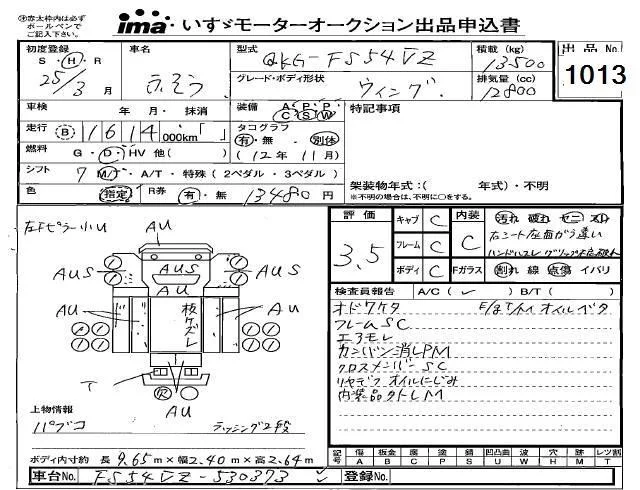 ※赤太枠内は必ず
ボールペンで
ご記入下さい。
ima いすゞモーターオークション出品申込書
初度登録 車名 型式 積載 (kg) 出品No.
S・H・R QKG-FS54VZ 13500
25/3 月 ふそう グレード・ボディ形状 排気量 (cc) 1013
ウィング 12800
車検 年 月・抹消 装備 A P P C S W 特記事項
走行 B 1614 000km「 」 タコグラフ
有・無 別体
燃料 G・D・HV 他( ) (12年11月)
シフト 7 M/T・A/T・特殊(2ペダル・3ペダル) 架装物年式:( 年式)・不明
色 指定 R券 有・無 13480 円 ※不明の場合は、不明に○をする。
評価 3.5
キャブ C 内装 C 汚れ 破れ ヤニ スレ
フレーム C 右シート左面がう違い
ボディ C Fガラス 割れ 線 点傷 イバリ
検査員報告 A/C( ✓ ) B/T( )
オドワケタ
フレームSC
エアモレ
カンバン消しPM
クロスメンバーSC
リヤデフ オイルにじみ
内装品クトレM
左Fピラー小U
AU
AUS AUS AUS
AU AU AU
板ケズレ
T
欠
AU
上物情報
パブコ ラッシング2段
ボディ内寸約 長 9.65 m×幅 2.40 m×高 2.64 m
記号 傷 A 板金 B 腐 C 塗 P 錆 S 凹 U 凹凸曲 U 波 W 穴 H 跡 M レツ割 T
車台No. FS54VZ-530373 登録No.